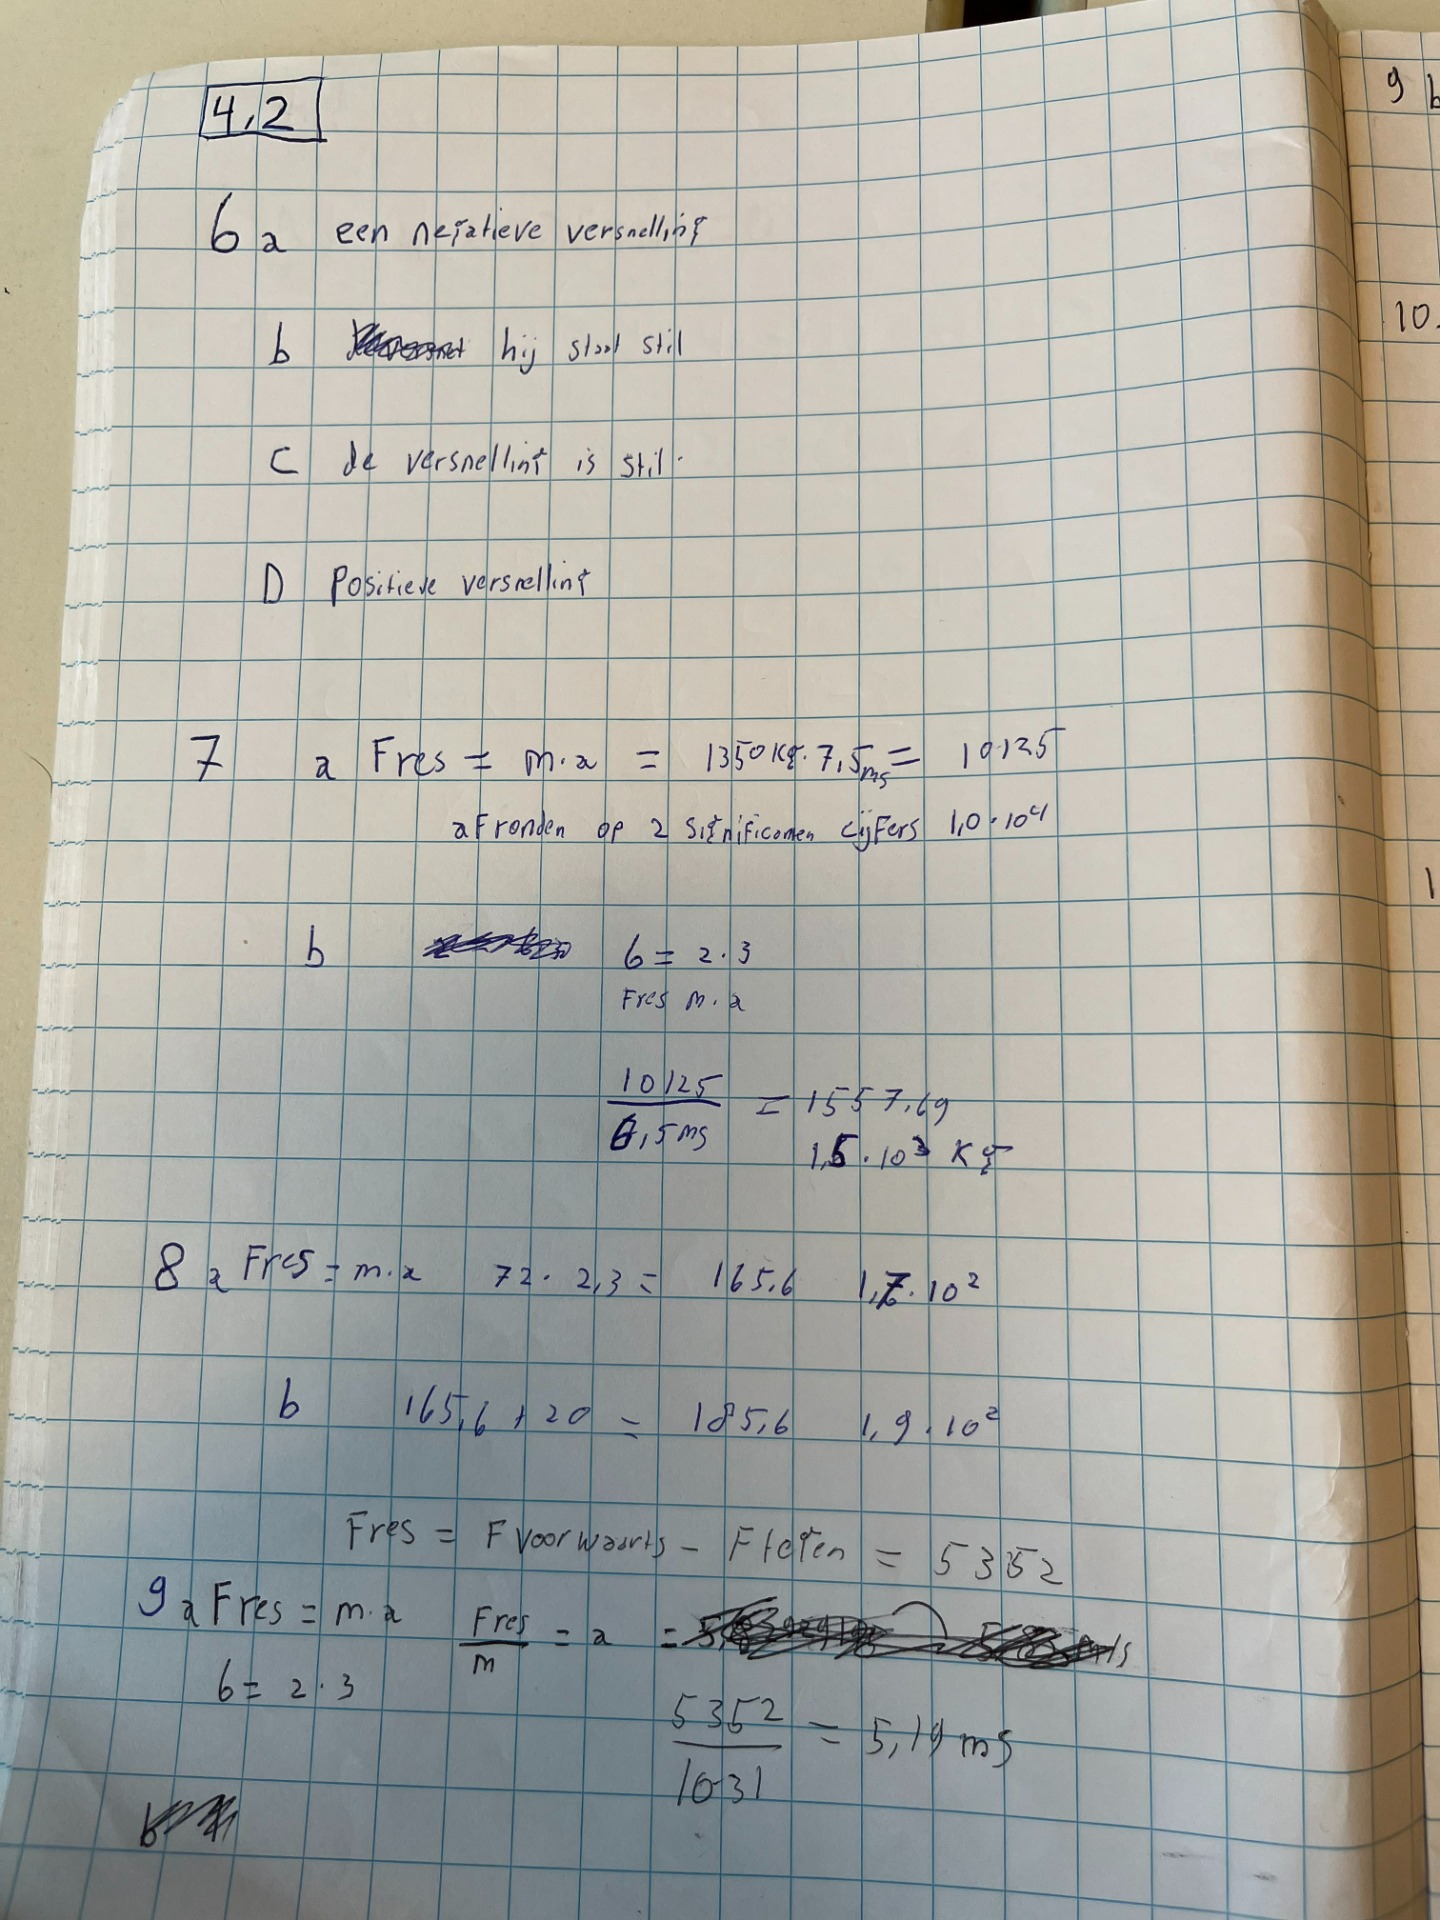 4,2
6 a een negatieve versnelling
b hij staat stil
C de versnelling is stil.
D Positieve versnelling
7 a Fres = m.a = 1350 kg. 7,5 ms = 10125
afronden op 2 significanen cijfers 1,0 . 10⁴
b 6 = 2.3
Fres m. a
10125 / 6,5 ms = 1557,69
1,5 . 10³ Kg
8 a Fres = m.a 72 . 2,3 = 165,6 1,7 . 10²
b 165,6 + 20 = 185,6 1,9 . 10²
Fres = F voorwaarts - F tegen = 5352
9 a Fres = m.a Fres / m = a =
6 = 2.3
5352 / 1031 = 5,19 ms
9 b
10.
1